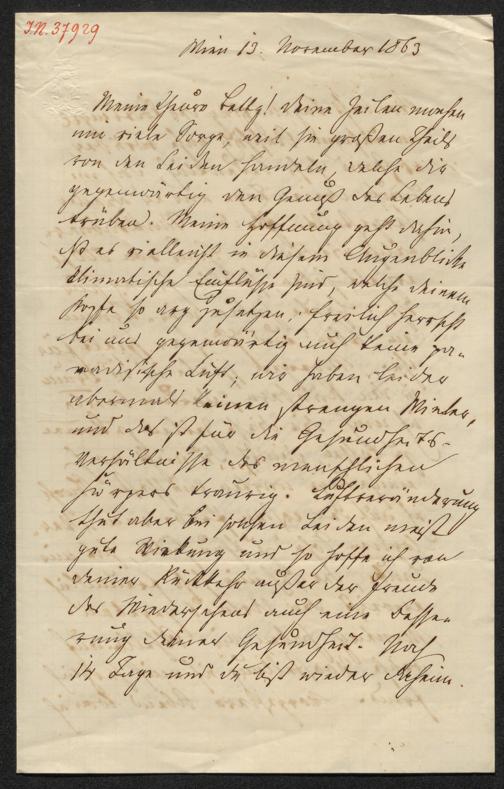 J.N. 37929
Wien 13. November 1863
Meine theure Betty! Deine Zeilen machen
mir viele Sorge, weil sie großen Theils
von den Leiden handeln, welche dir
gegenwärtig den Genuß des Lebens
trüben. Meine Hoffnung geht dahin,
daß es vielleicht in diesem Augenblicke
klimatische Einflüsse sind, welche deinem
Kopfe so arg zusetzen; freilich herrscht
bei uns gegenwärtig auch keine pa-
radisische Luft; wir haben leider
abermals keinen strengen Winter,
und das ist für die Gesundheits-
verhältnisse des menschlichen
Körpers traurig. Luftveränderung
thut aber bei solchen Leiden meist
gute Wirkung und so hoffe ich von
deiner Rückkehr außer der Freude
des Wiedersehens auch eine Besse-
rung deiner Gesundheit. Noch
14 Tage und du bist wieder daheim.